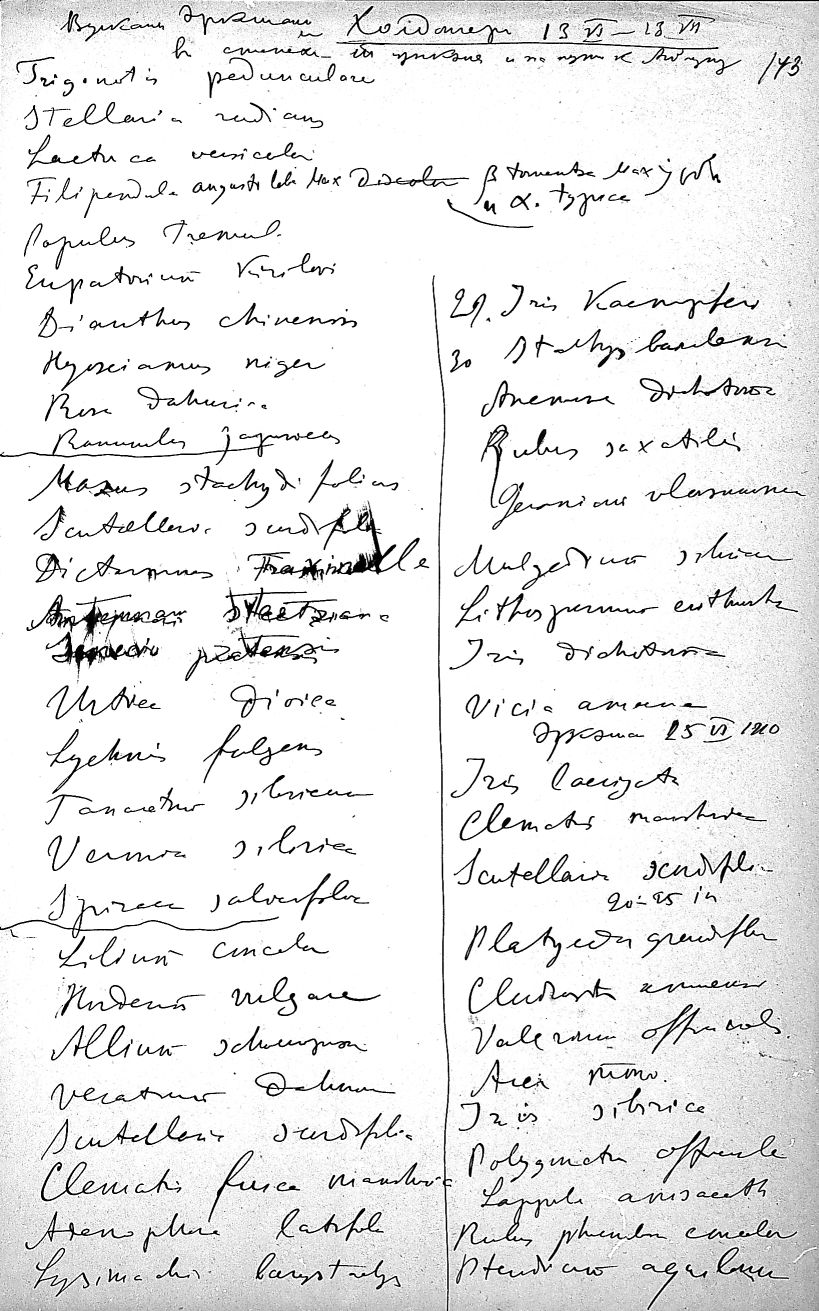 Хойдонери 13 VI – 13 VII
143
Trigonotis peduncularе
Stellaria radians
Lactuca versicolor
Filipendula angustiloba Max Discolor β tomentosa Max
и α. typica
Populus Tremul.
Eupatorium Kirilovi
Dianthus chinensis
Hyosciamus niger
Rosa Dahurica
Ranunculus japonicus
Mazus stachydifolius
Scutellaria scordifolia
Dictamnus Fraxinella
Senecio pratensis
Urtica dioica
Lychnis fulgens
Tanacetum sibiricum
Spiraea salicifolia
Lilium concolor
Hordeum vulgare
Allium
Veratrum Dahuric
Scutellaria scordifolia
Clematis fusca manshurica
Adenophora latifolia
Lysimachia barystachys
29. Iris Kaempferi
30 Stachys baicalensis
Anemone dichotoma
Rubus saxatilis
Geranium vlassowianum
Mulgedium sibiricum
Lithospermum erithrorh
Iris dichotoma
Vicia amoena
25 VI 1910
Iris laevigata
Clematis manshurica
Scutellaria scordifolia
20-25 in
Platycodon grandiflor
Valeriana officinalis
Acer mono.
Iris sibirica
Polygonatum officinale
Lappula
Rubus
Pteridium aquilinum